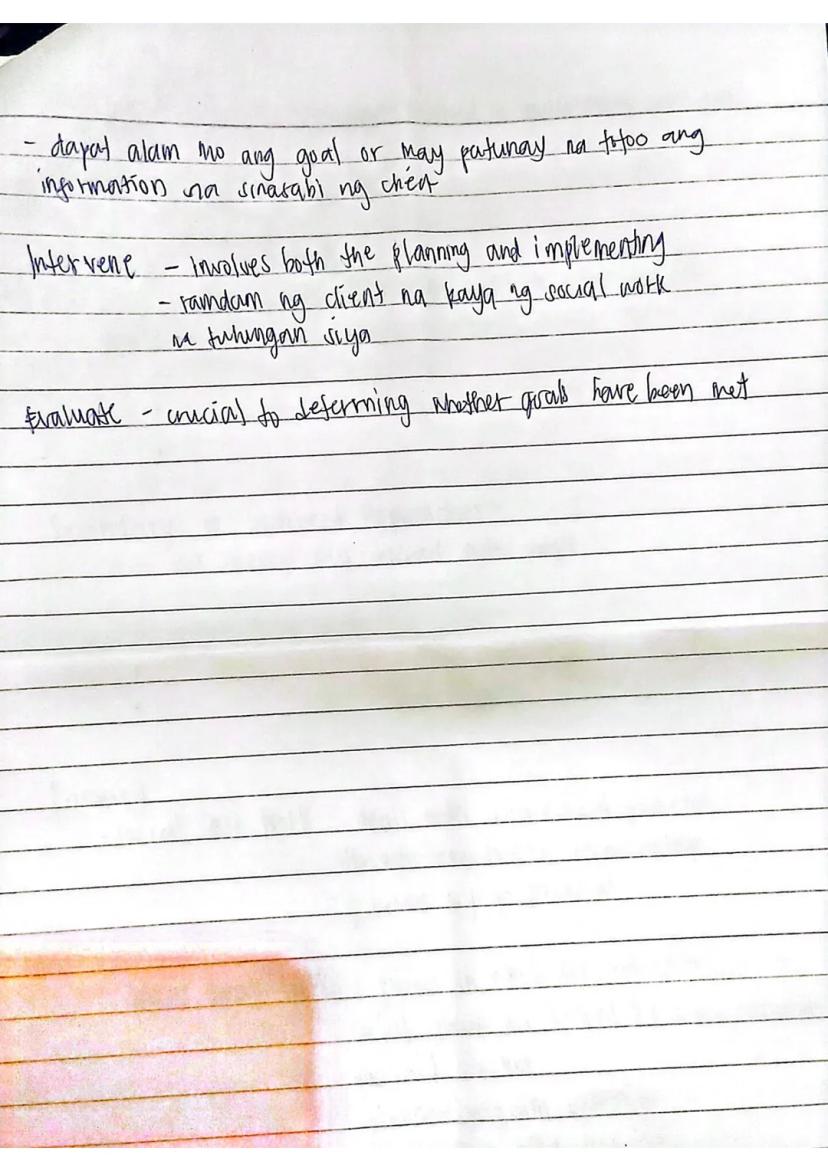 - dapat alam mo ang goal or may patunay na totoo ang
information na sinasabi ng client
Intervene - involves both the planning and implementing
- ramdam ng client na kaya ng social work
na tulungan siya
Evaluate - crucial to determing whether goals have been met